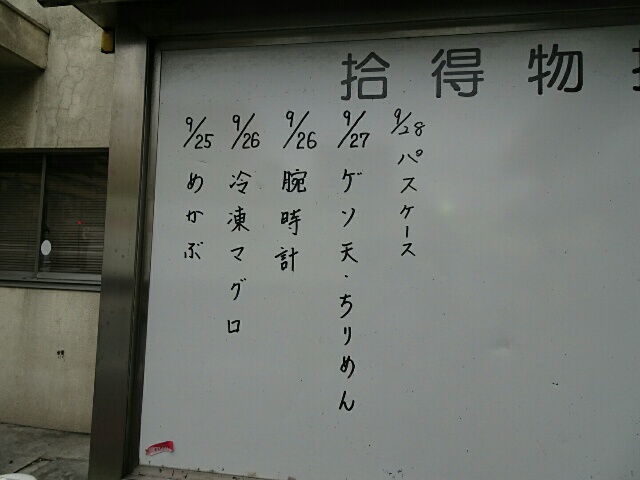 拾得物
9/28 パスケース
9/27 ゲソ天・ちりめん
9/26 腕時計
9/26 冷凍マグロ
9/25 めかぶ